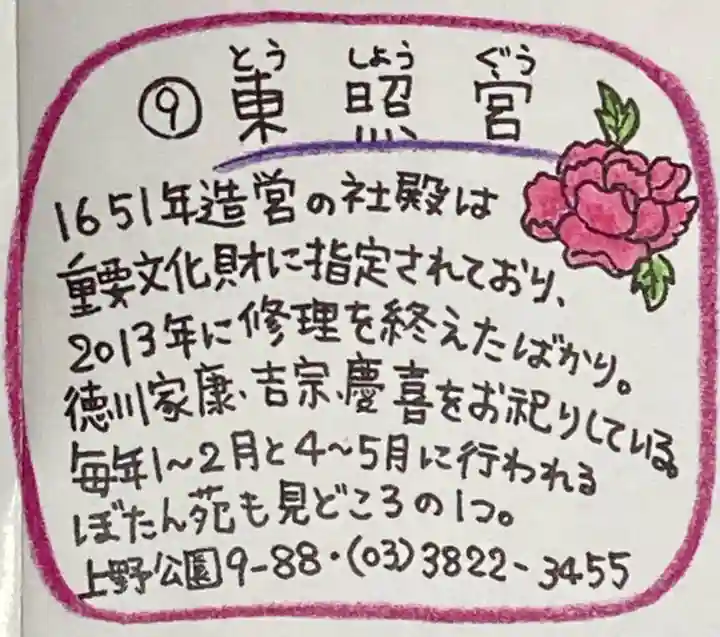 とう しょう ぐう
⑨ 東照宮
1651年造営の社殿は
重要文化財に指定されており、
2013年に修理を終えたばかり。
徳川家康、吉宗、慶喜をお祀りしている。
毎年1〜2月と4〜5月に行われる
ぼたん苑も見どころの1つ。
上野公園9-88・(03)3822-3455